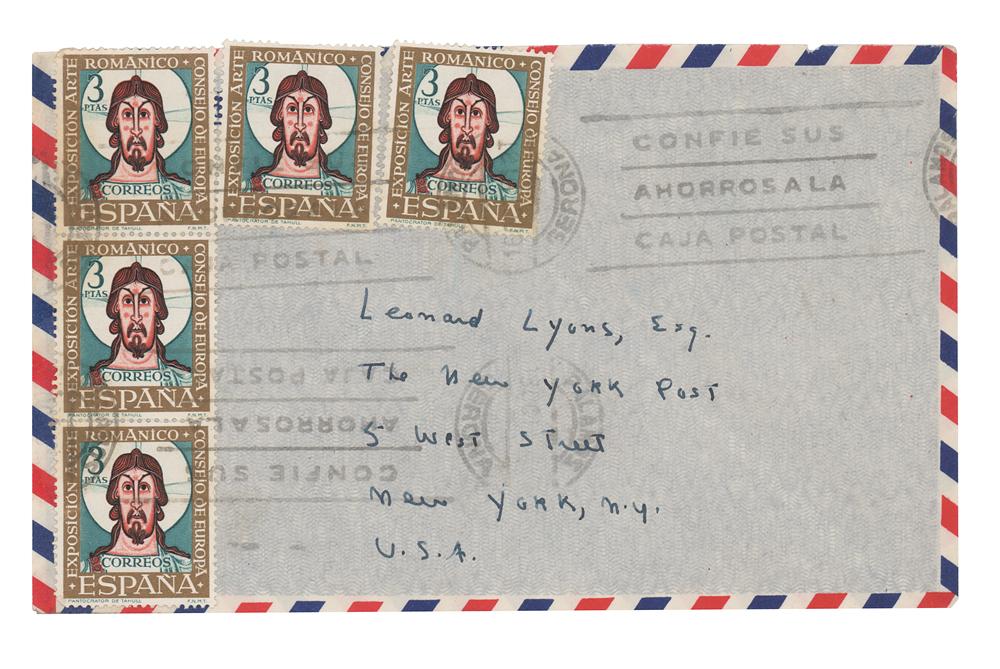 EXPOSICIÓN ARTE ROMÁNICO + CONSEJO DE EUROPA
3 PTAS
CORREOS
+ ESPAÑA +
PANTOCRATOR DE TAHULL F.N.M.T.
EXPOSICIÓN ARTE ROMÁNICO + CONSEJO DE EUROPA
3 PTAS
CORREOS
+ ESPAÑA +
PANTOCRATOR DE TAHULL F.N.M.T.
EXPOSICIÓN ARTE ROMÁNICO + CONSEJO DE EUROPA
3 PTAS
CORREOS
+ ESPAÑA +
PANTOCRATOR DE TAHULL F.N.M.T.
GERONA
CONFIE SUS
AHORROS A LA
CAJA POSTAL
EXPOSICIÓN ARTE ROMÁNICO + CONSEJO DE EUROPA
3 PTAS
CORREOS
+ ESPAÑA +
PANTOCRATOR DE TAHULL F.N.M.T.
CAJA POSTAL
Leonard Lyons, Esq.
The New York Post
5 West Street
New York, N.Y.
U.S.A.
CAJA POSTAL
AHORROS A LA
CONFIE SUS
GERONA
EXPOSICIÓN ARTE ROMÁNICO + CONSEJO DE EUROPA
3 PTAS
CORREOS
+ ESPAÑA +
PANTOCRATOR DE TAHULL F.N.M.T.